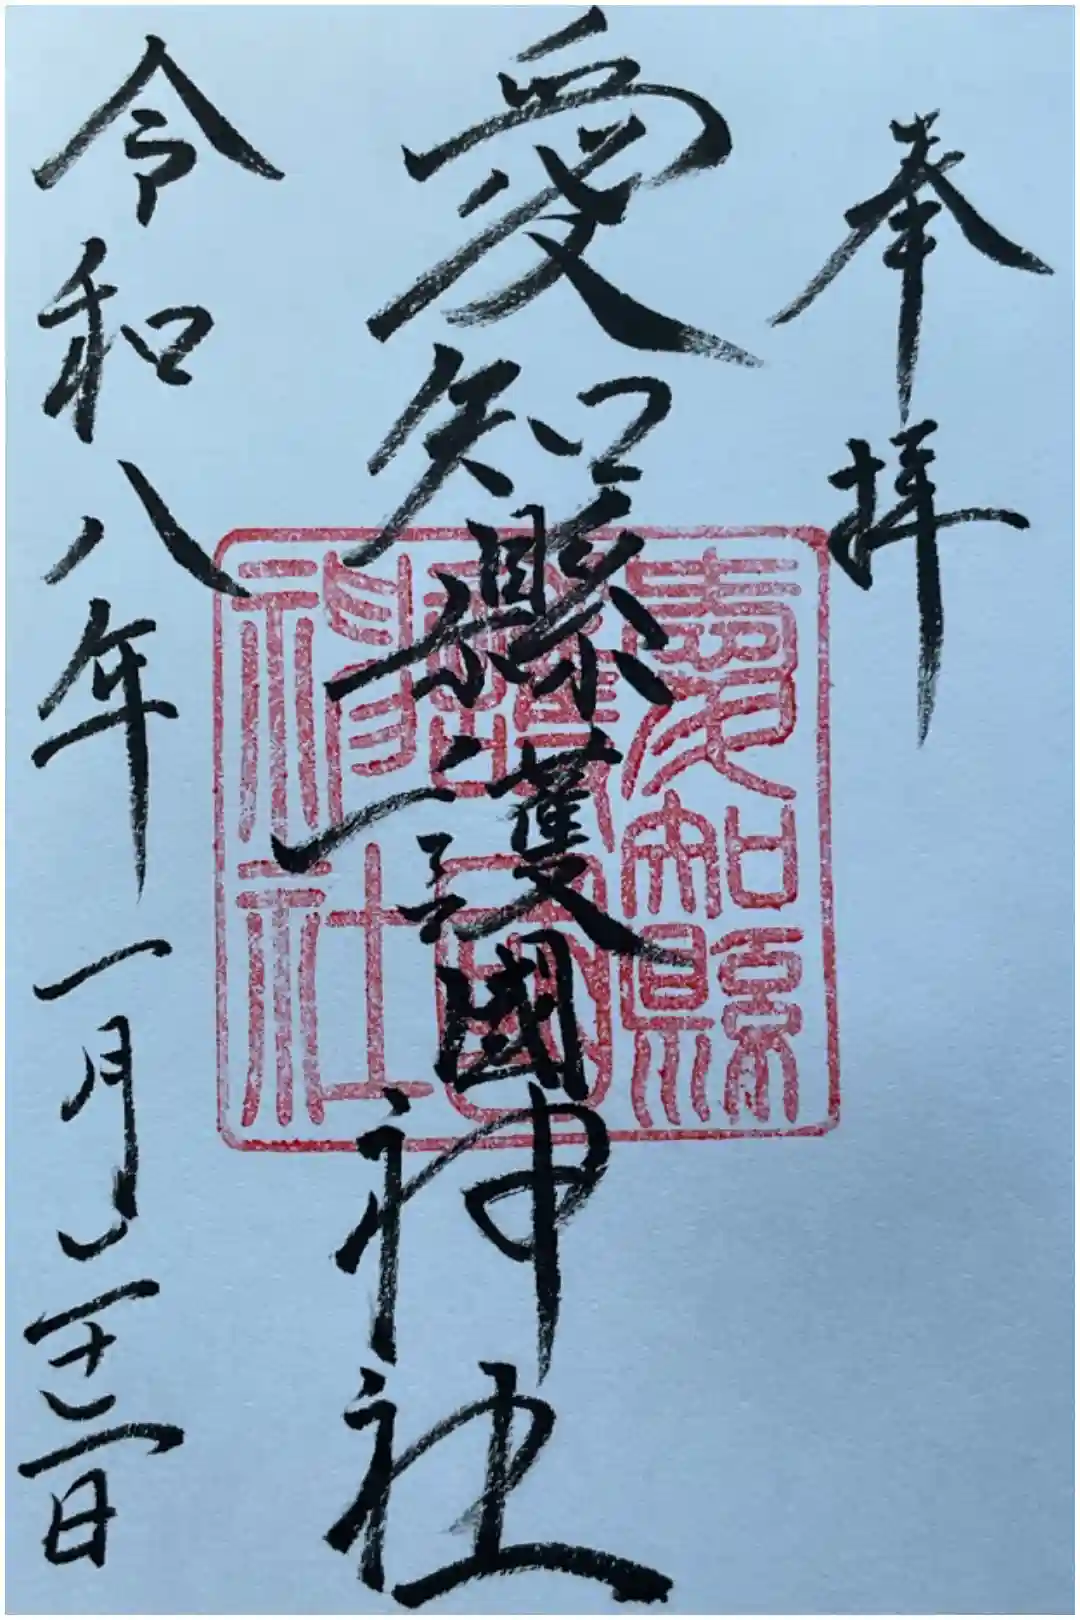 奉拝
愛知縣護國神社
令和八年一月二十二日
愛知縣
護國
神社